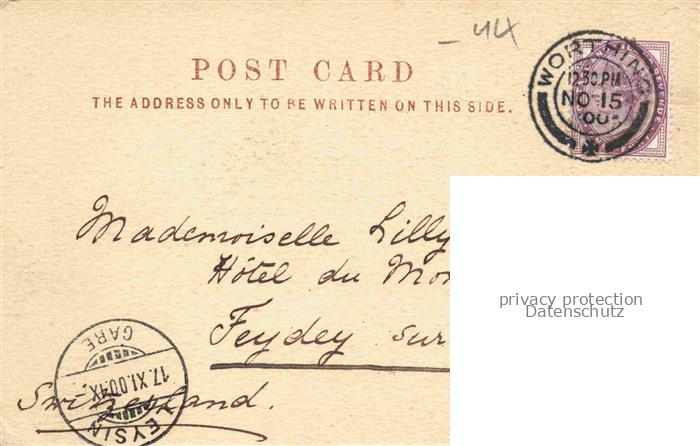 - 44
POST CARD
THE ADDRESS ONLY TO BE WRITTEN ON THIS SIDE.
WORTHING
12.30 PM
NO 15
00
REVENUE
Mademoiselle Lilly
Hôtel du Mon
Feydey sur
Switzerland.
GARE
17. XI. 00. IX
LEYSIN
privacy protection
Datenschutz